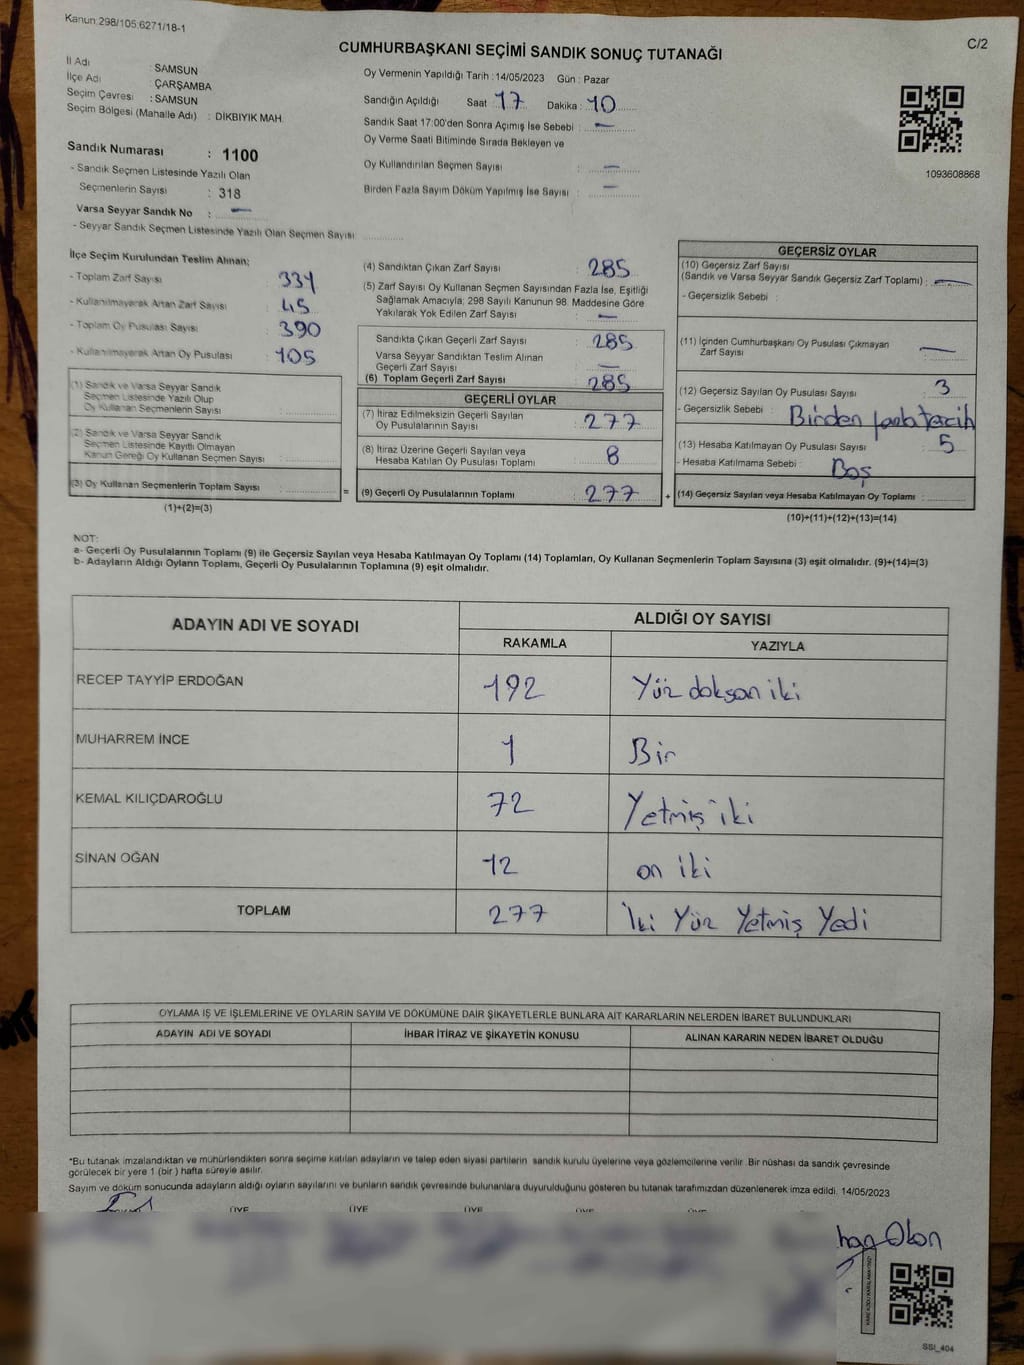 Kanun:298/105:6271/18-1
C/2
CUMHURBAŞKANI SEÇİMİ SANDIK SONUÇ TUTANAĞI
İl Adı : SAMSUN
İlçe Adı ÇARŞAMBA
Seçim Çevresi : SAMSUN
Seçim Bölgesi (Mahalle Adı) : DİKBIYIK MAH.
Sandık Numarası : 1100
- Sandık Seçmen Listesinde Yazılı Olan
Seçmenlerin Sayısı : 318
Varsa Seyyar Sandık No : —
- Seyyar Sandık Seçmen Listesinde Yazılı Olan Seçmen Sayısı
Oy Vermenin Yapıldığı Tarih :14/05/2023 Gün : Pazar
Sandığın Açıldığı Saat 17 Dakika : 10
Sandık Saat 17:00'den Sonra Açımış İse Sebebi : —
Oy Verme Saati Bitiminde Sırada Bekleyen ve
Oy Kullandırılan Seçmen Sayısı : —
Birden Fazla Sayım Döküm Yapılmış İse Sayısı : —
1093608868
İlçe Seçim Kurulundan Teslim Alınan;
- Toplam Zarf Sayısı : 331
- Kullanılmayarak Artan Zarf Sayısı : 45
- Toplam Oy Pusulası Sayısı : 390
- Kullanılmayarak Artan Oy Pusulası : 105
(1) Sandık ve Varsa Seyyar Sandık
Seçmen Listesinde Yazılı Olup
Oy Kullanan Seçmenlerin Sayısı :
(2) Sandık ve Varsa Seyyar Sandık
Seçmen Listesinde Kayıtlı Olmayan
Kanun Gereği Oy Kullanan Seçmen Sayısı :
(3) Oy Kullanan Seçmenlerin Toplam Sayısı : =
(1)+(2)=(3)
(4) Sandıktan Çıkan Zarf Sayısı : 285
(5) Zarf Sayısı Oy Kullanan Seçmen Sayısından Fazla İse, Eşitliği
Sağlamak Amacıyla; 298 Sayılı Kanunun 98. Maddesine Göre
Yakılarak Yok Edilen Zarf Sayısı : —
Sandıkta Çıkan Geçerli Zarf Sayısı : 285
Varsa Seyyar Sandıktan Teslim Alınan
Geçerli Zarf Sayısı : —
(6) Toplam Geçerli Zarf Sayısı : 285
GEÇERLİ OYLAR
(7) İtiraz Edilmeksizin Geçerli Sayılan
Oy Pusulalarının Sayısı : 277
(8) İtiraz Üzerine Geçerli Sayılan veya
Hesaba Katılan Oy Pusulası Toplamı : 8
(9) Geçerli Oy Pusulalarının Toplamı : 277 +
GEÇERSİZ OYLAR
(10) Geçersiz Zarf Sayısı
(Sandık ve Varsa Seyyar Sandık Geçersiz Zarf Toplamı) : —
- Geçersizlik Sebebi :
(11) İçinden Cumhurbaşkanı Oy Pusulası Çıkmayan
Zarf Sayısı : —
(12) Geçersiz Sayılan Oy Pusulası Sayısı : 3
- Geçersizlik Sebebi : Birden fazla tercih
(13) Hesaba Katılmayan Oy Pusulası Sayısı : 5
- Hesaba Katılmama Sebebi : Boş
(14) Geçersiz Sayılan veya Hesaba Katılmayan Oy Toplamı :
(10)+(11)+(12)+(13)=(14)
NOT:
a- Geçerli Oy Pusulalarının Toplamı (9) ile Geçersiz Sayılan veya Hesaba Katılmayan Oy Toplamı (14) Toplamları, Oy Kullanan Seçmenlerin Toplam Sayısına (3) eşit olmalıdır. (9)+(14)=(3)
b- Adayların Aldığı Oyların Toplamı, Geçerli Oy Pusulalarının Toplamına (9) eşit olmalıdır.
ADAYIN ADI VE SOYADI ALDIĞI OY SAYISI
RAKAMLA YAZIYLA
RECEP TAYYİP ERDOĞAN 192 Yüz doksan iki
MUHARREM İNCE 1 Bir
KEMAL KILIÇDAROĞLU 72 Yetmiş iki
SİNAN OĞAN 12 on iki
TOPLAM 277 İki Yüz Yetmiş Yedi
OYLAMA İŞ VE İŞLEMLERİNE VE OYLARIN SAYIM VE DÖKÜMÜNE DAİR ŞİKAYETLERLE BUNLARA AİT KARARLARIN NELERDEN İBARET BULUNDUKLARI
ADAYIN ADI VE SOYADI İHBAR İTİRAZ VE ŞİKAYETİN KONUSU ALINAN KARARIN NEDEN İBARET OLDUĞU
*Bu tutanak imzalandıktan ve mühürlendikten sonra seçime katılan adayların ve talep eden siyasi partilerin sandık kurulu üyelerine veya gözlemcilerine verilir. Bir nüshası da sandık çevresinde
görülecek bir yere 1 (bir) hafta süreyle asılır.
Sayım ve döküm sonucunda adayların aldığı oyların sayılarını ve bunların sandık çevresinde bulunanlara duyurulduğunu gösteren bu tutanak tarafımızdan düzenlenerek imza edildi. 14/05/2023
ÜYE ÜYE ÜYE ÜYE ÜYE
SSI_404